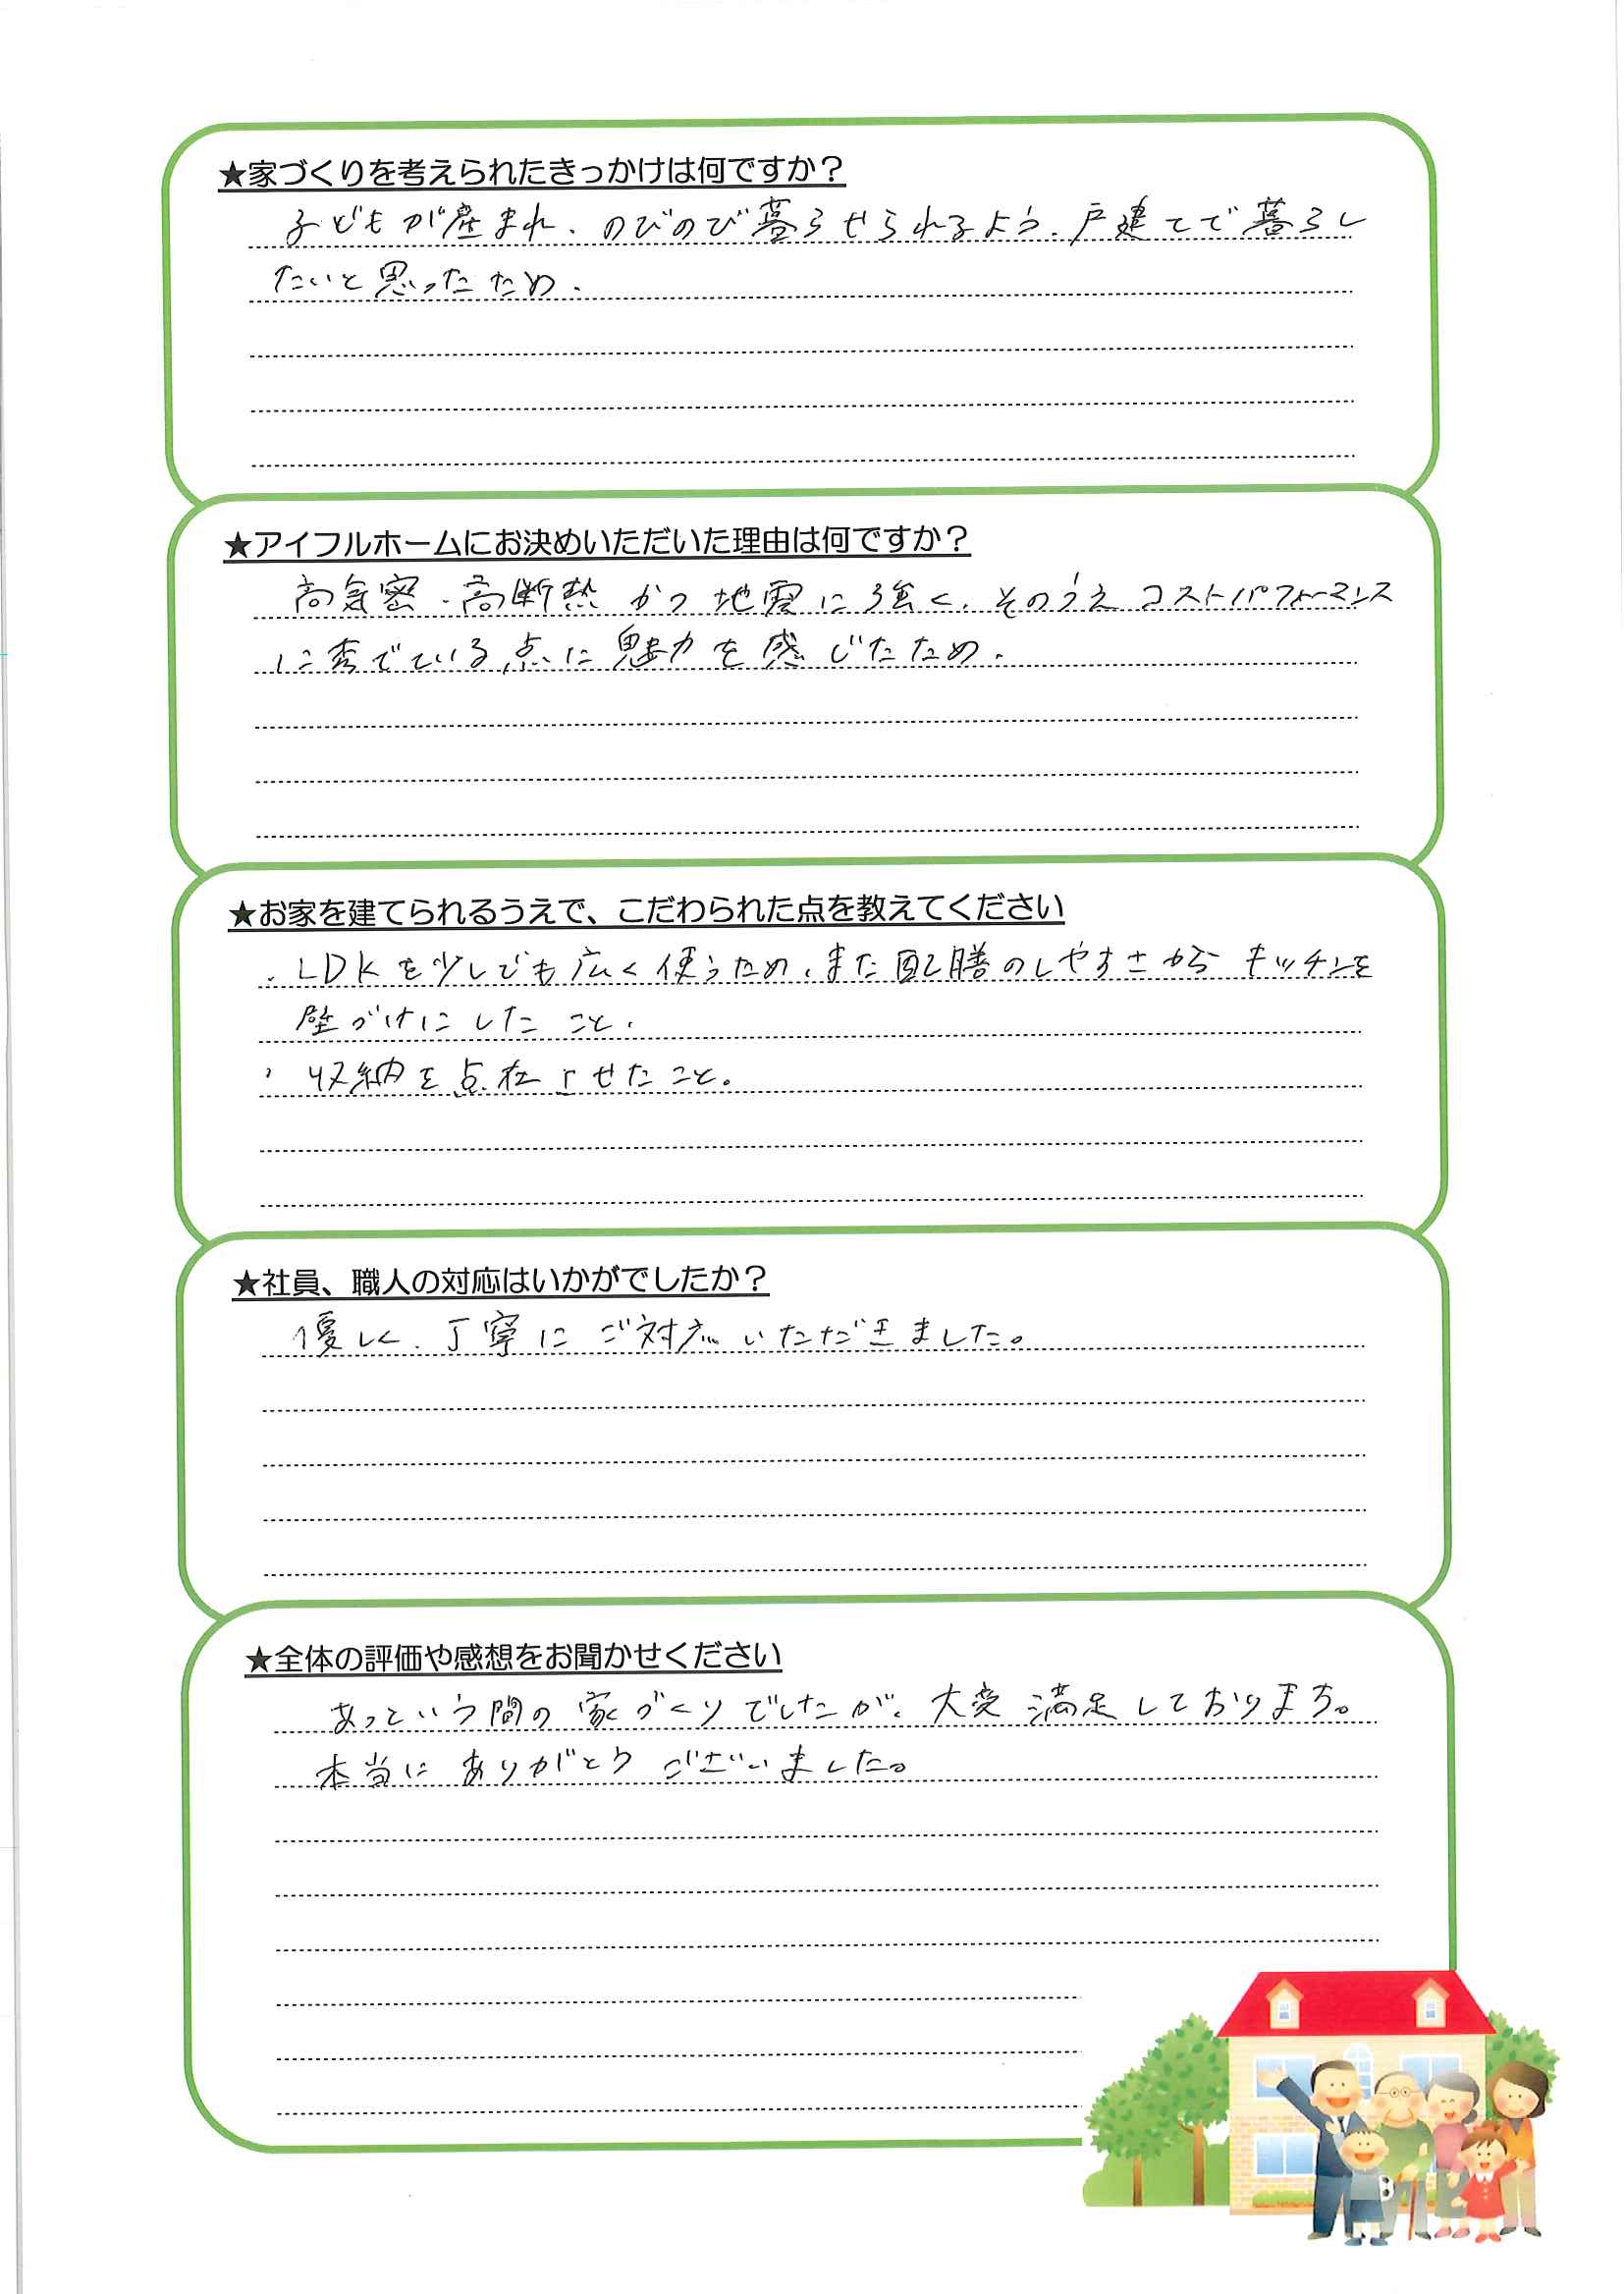 ★家づくりを考えられたきっかけは何ですか？
子どもが産まれ、のびのび暮らせられるよう、戸建てで暮らし
たいと思ったため。
★アイフルホームにお決めいただいた理由は何ですか？
高気密・高断熱かつ地震に強く、そのうえコストパフォーマンス
に秀でている点に魅力を感じたため。
★お家を建てられるうえで、こだわられた点を教えてください
・LDKを少しでも広く使うため、また配膳のしやすさからキッチンを
壁づけにしたこと。
・収納を点在させたこと。
★社員、職人の対応はいかがでしたか？
優しく、丁寧にご対応いただきました。
★全体の評価や感想をお聞かせください
あっという間の家づくりでしたが、大変満足しております。
本当にありがとうございました。